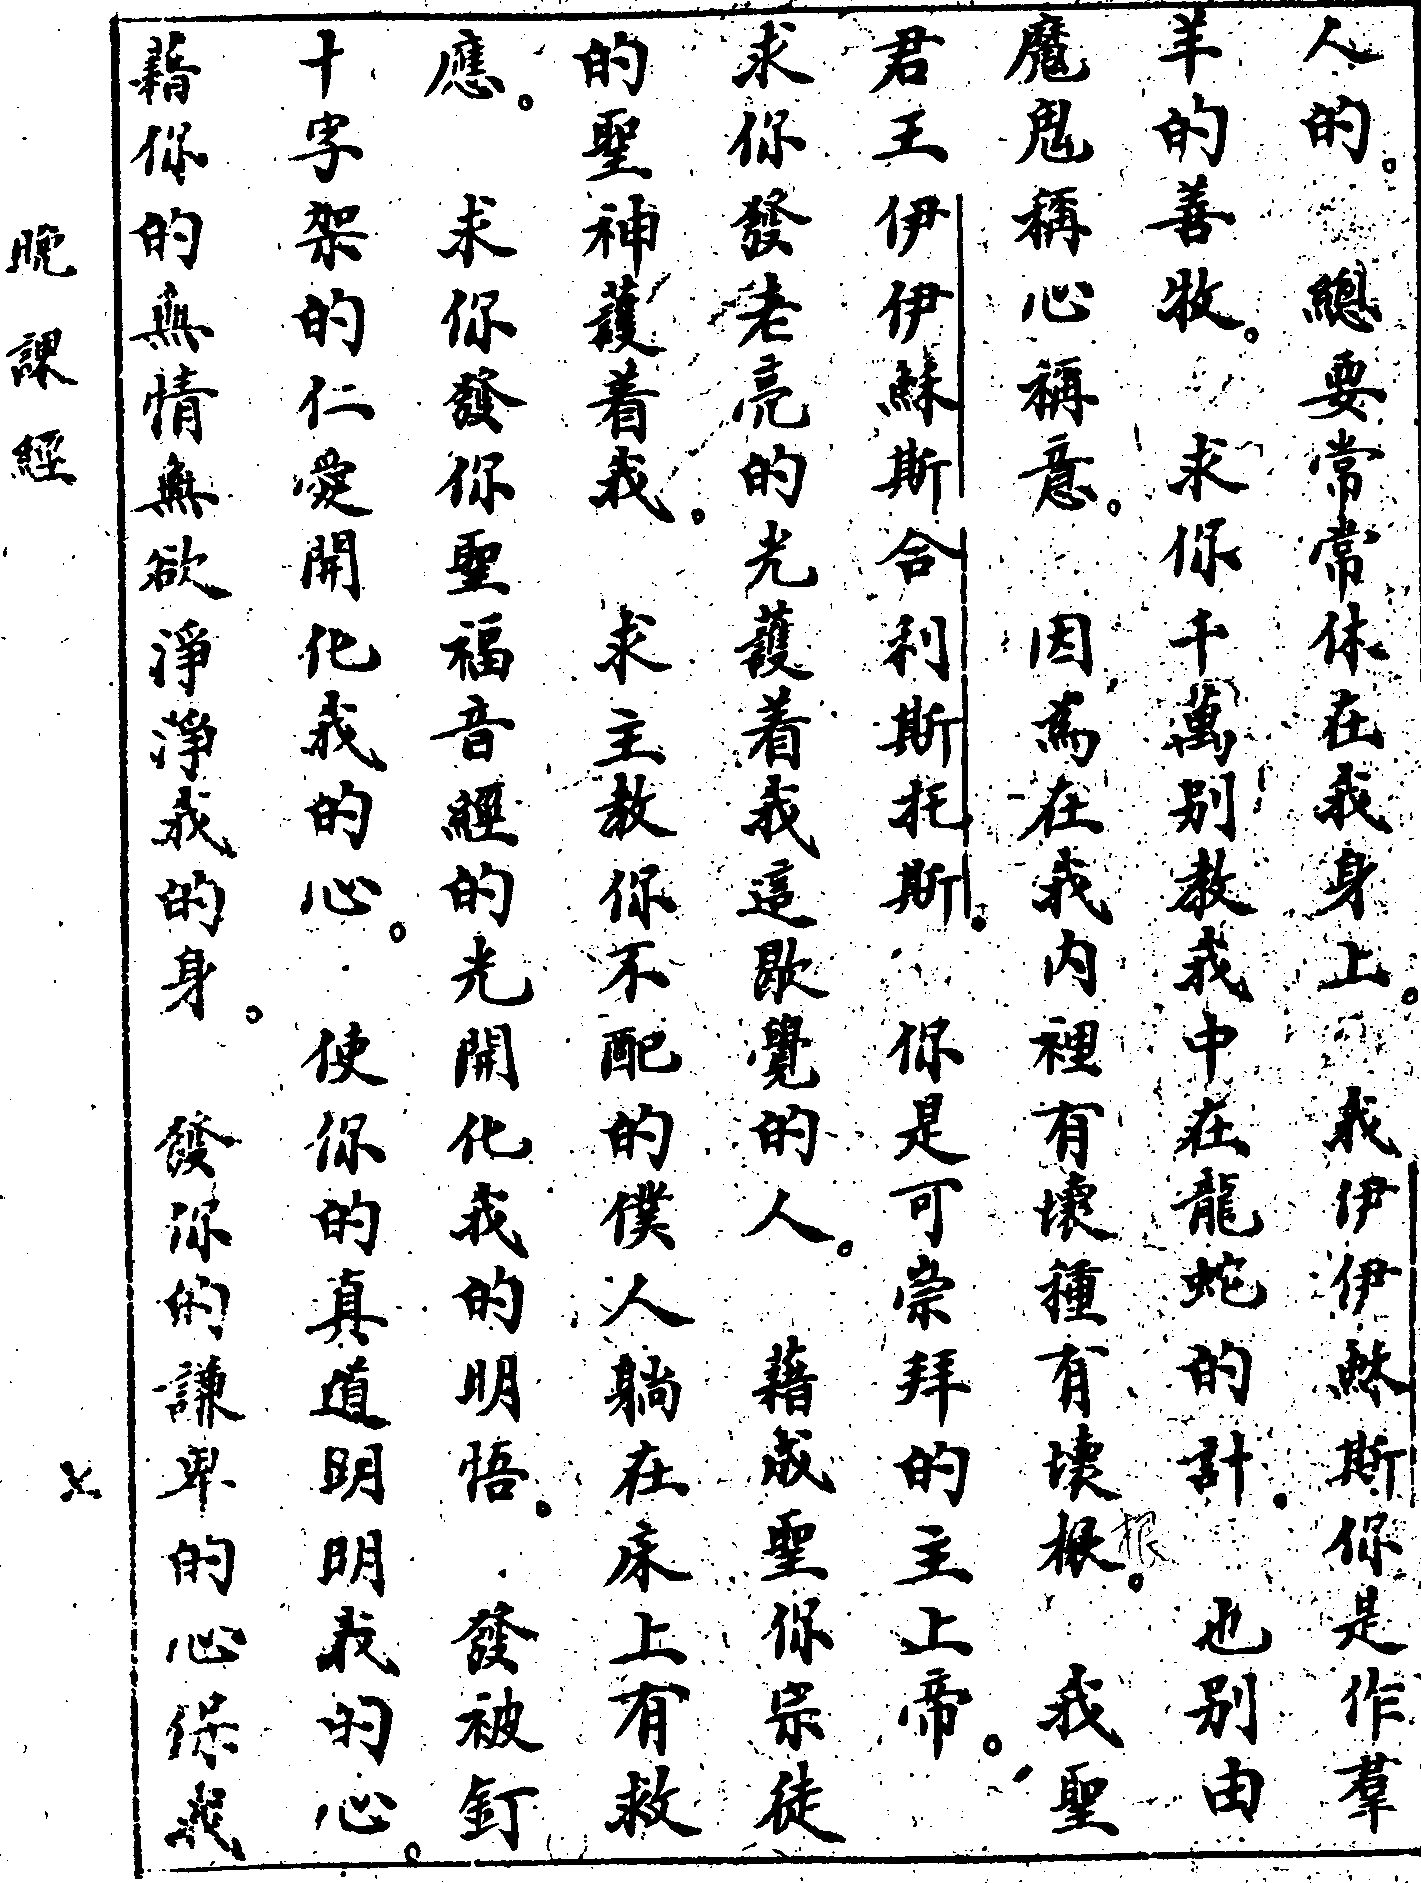 人的。總要常常休在我身上。我伊伊穌斯你是作羣
羊的善牧。求你千萬别教我中在龍蛇的計。也别由
魔鬼稱心稱意。因為在我内裡有壞種有壞根。我聖
根
君王伊伊穌斯合利斯托斯。你是可崇拜的主上帝。
求你發老亮的光護着我這歇覺的人。藉成聖你宗徒
的聖神護着我。求主教你不配的僕人躺在床上有救
應。求你發你聖福音經的光開化我的明悟。發被釘
十字架的仁愛開化我的心。使你的真道明明我的心。
藉你的無情無欲淨淨我的身。發你的謙卑的心保我
晚課經